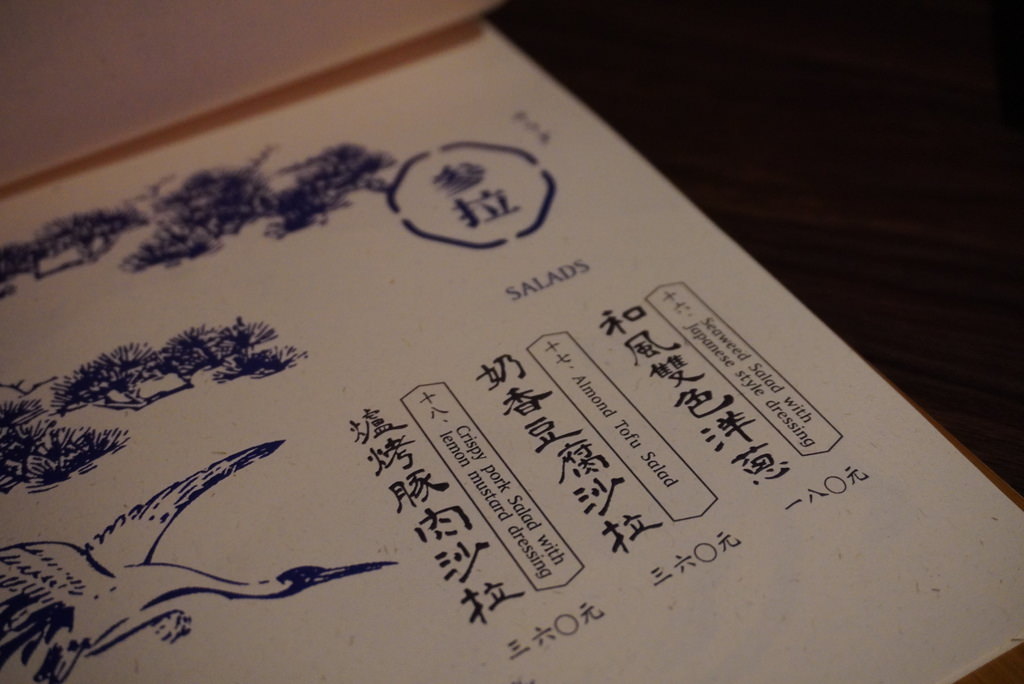 叁
拉
SALADS
十六、
Seaweed Salad with
Japanese style dressing
和風雙色洋蔥
一八〇元
十七、
Almond Tofu Salad
奶香豆腐沙拉
三六〇元
十八、
Crispy pork Salad with
lemon mustard dressing
爐烤豚肉沙拉
三六〇元